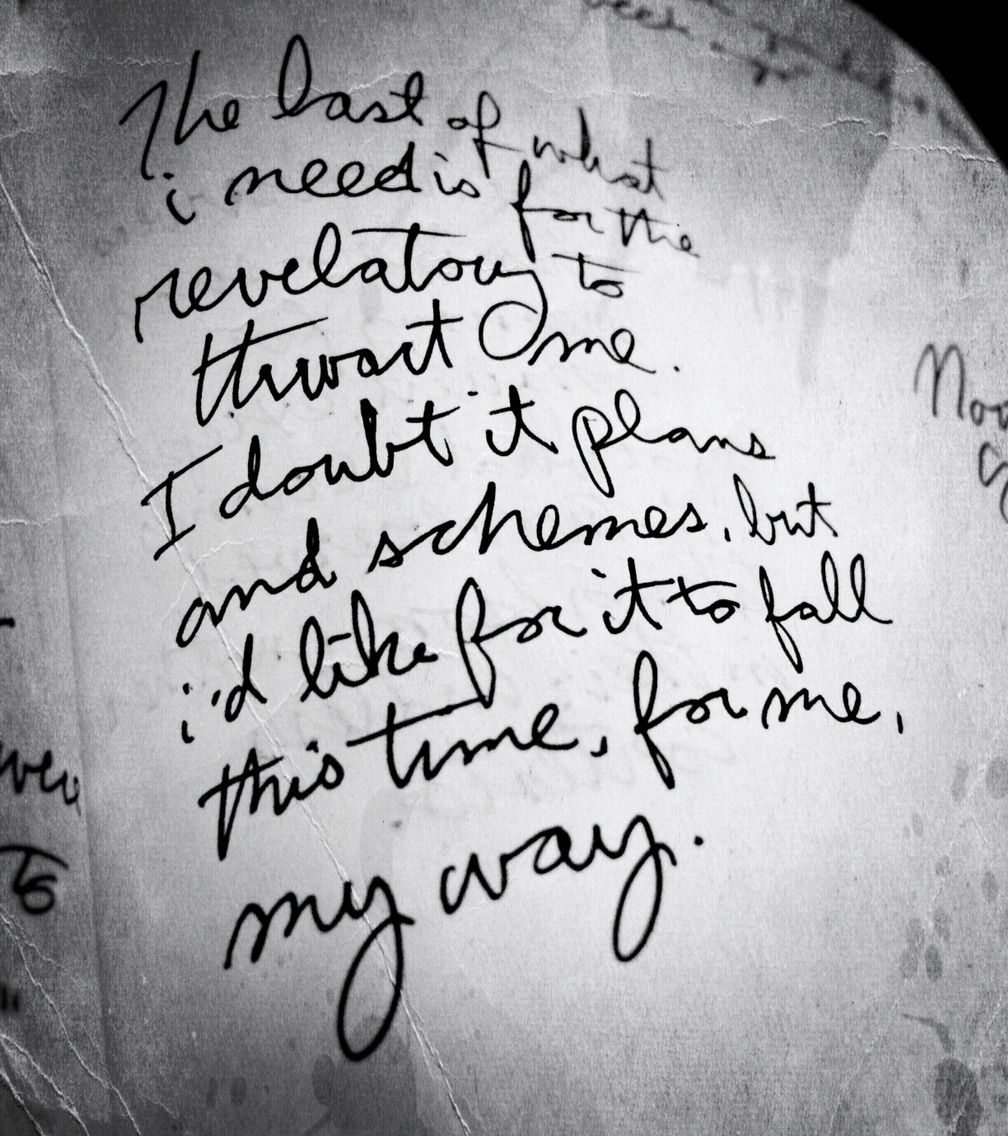 The last of what
i need is for the
revelatory to
thwart me.
I doubt it plans
and schemes, but
i'd like for it to fall
this time, for me,
my way.
To